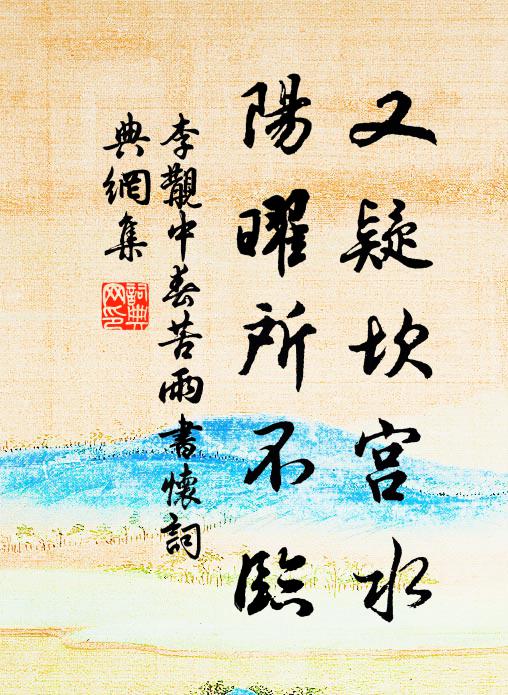 又疑坎宫水
陽曜所不臨
李觀中春苦雨書懷詞
典網集
詞典網印